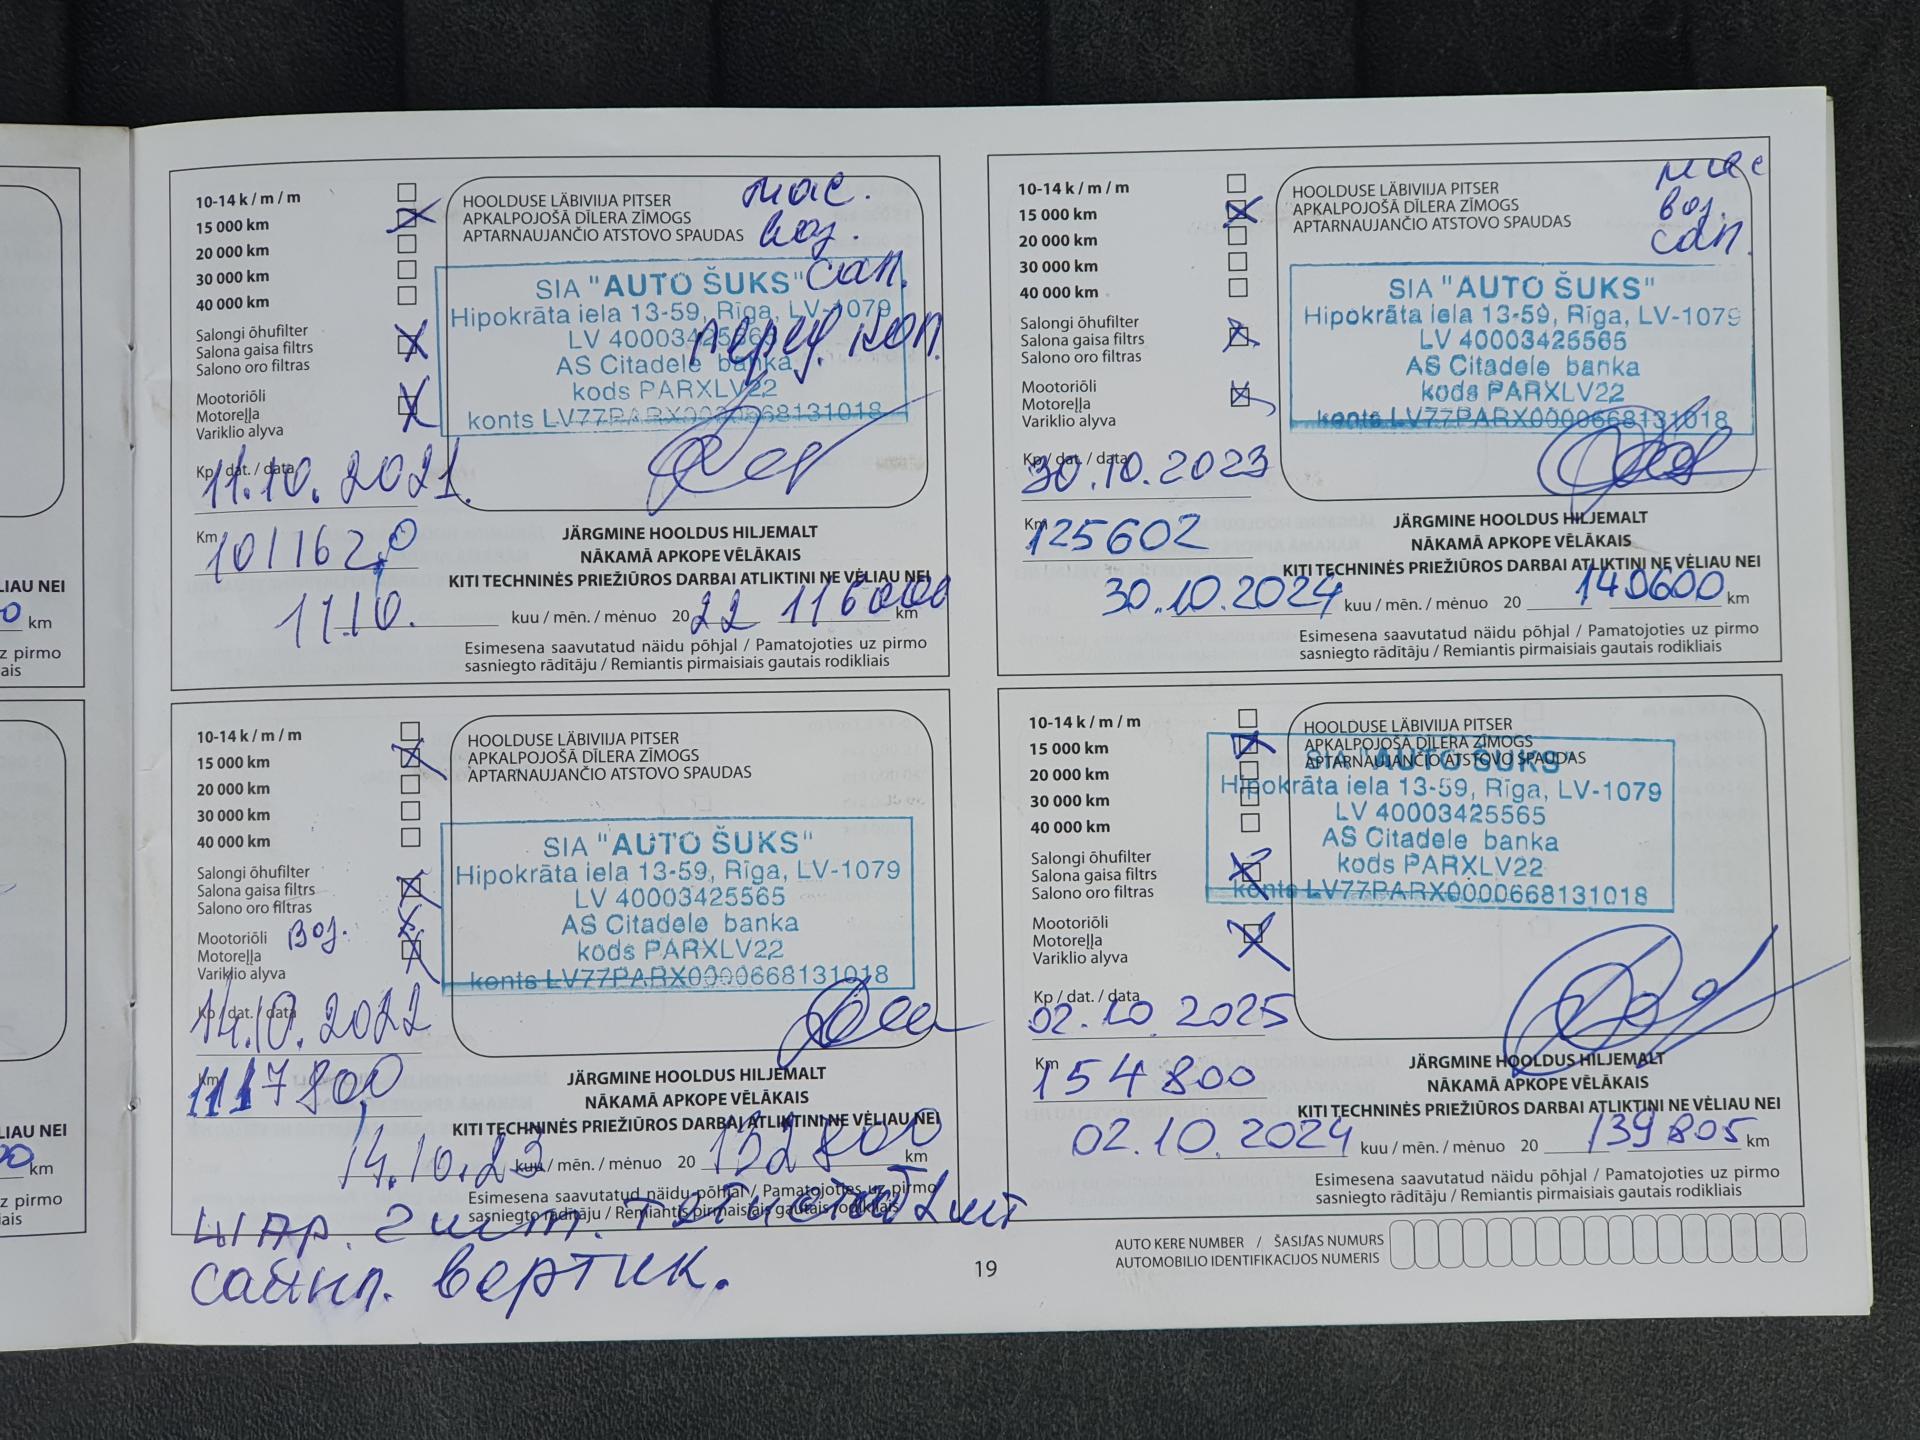 LIAU NEI
0 km
z pirmo
ais
LIAU NEI
00 km
uz pirmo
iais
10-14 k / m / m
15 000 km
20 000 km
30 000 km
40 000 km
Salongi õhufilter
Salona gaisa filtrs
Salono oro filtras
Mootoriõli
Motoreļļa
Variklio alyva
Kp / dat. / data
11.10.2021.
Km
101162,0
HOOLDUSE LÄBIVIIJA PITSER
APKALPOJOŠĀ DĪLERA ZĪMOGS
APTARNAUJANČIO ATSTOVO SPAUDAS
мас.
воз.
сал.
перед. кол.
SIA "AUTO ŠUKS"
Hipokrāta iela 13-59, Rīga, LV-1079
LV 40003425565
AS Citadele banka
kods PARXLV22
konts LV77PARX0000668131018
JÄRGMINE HOOLDUS HILJEMALT
NĀKAMĀ APKOPE VĒLĀKAIS
KITI TECHNINĖS PRIEŽIŪROS DARBAI ATLIKTINI NE VĖLIAU NEI
11.10. kuu / mēn. / mėnuo 2022 116000 km
Esimesena saavutatud näidu põhjal / Pamatojoties uz pirmo
sasniegto rādītāju / Remiantis pirmaisiais gautais rodikliais
10-14 k / m / m
15 000 km
20 000 km
30 000 km
40 000 km
Salongi õhufilter
Salona gaisa filtrs
Salono oro filtras
Mootoriõli
Motoreļļa
Variklio alyva
Kp / dat. / data
30.10.2023
Km
125602
HOOLDUSE LÄBIVIIJA PITSER
APKALPOJOŠĀ DĪLERA ZĪMOGS
APTARNAUJANČIO ATSTOVO SPAUDAS
мас
воз.
сал.
SIA "AUTO ŠUKS"
Hipokrāta iela 13-59, Rīga, LV-1079
LV 40003425565
AS Citadele banka
kods PARXLV22
konts LV77PARX0000668131018
JÄRGMINE HOOLDUS HILJEMALT
NĀKAMĀ APKOPE VĒLĀKAIS
KITI TECHNINĖS PRIEŽIŪROS DARBAI ATLIKTINI NE VĖLIAU NEI
30.10.2024 kuu / mēn. / mėnuo 20 140600 km
Esimesena saavutatud näidu põhjal / Pamatojoties uz pirmo
sasniegto rādītāju / Remiantis pirmaisiais gautais rodikliais
10-14 k / m / m
15 000 km
20 000 km
30 000 km
40 000 km
Salongi õhufilter
Salona gaisa filtrs
Salono oro filtras
Воз.
Mootoriõli
Motoreļļa
Variklio alyva
Kp / dat. / data
14.10.2022
Km
117800
HOOLDUSE LÄBIVIIJA PITSER
APKALPOJOŠĀ DĪLERA ZĪMOGS
APTARNAUJANČIO ATSTOVO SPAUDAS
SIA "AUTO ŠUKS"
Hipokrāta iela 13-59, Rīga, LV-1079
LV 40003425565
AS Citadele banka
kods PARXLV22
konts LV77PARX0000668131018
JÄRGMINE HOOLDUS HILJEMALT
NĀKAMĀ APKOPE VĒLĀKAIS
KITI TECHNINĖS PRIEŽIŪROS DARBAI ATLIKTINI NE VĖLIAU NEI
14.10.23 kuu / mēn. / mėnuo 20 132800 km
Esimesena saavutatud näidu põhjal / Pamatojoties uz pirmo
sasniegto rādītāju / Remiantis pirmaisiais gautais rodikliais
шар. 2 шт.
сайнл. вертик.
10-14 k / m / m
15 000 km
20 000 km
30 000 km
40 000 km
Salongi õhufilter
Salona gaisa filtrs
Salono oro filtras
Mootoriõli
Motoreļļa
Variklio alyva
Kp / dat. / data
02.10.2025
Km
154800
HOOLDUSE LÄBIVIIJA PITSER
APKALPOJOŠĀ DĪLERA ZĪMOGS
APTARNAUJANČIO ATSTOVO SPAUDAS
SIA "AUTO ŠUKS"
Hipokrāta iela 13-59, Rīga, LV-1079
LV 40003425565
AS Citadele banka
kods PARXLV22
konts LV77PARX0000668131018
JÄRGMINE HOOLDUS HILJEMALT
NĀKAMĀ APKOPE VĒLĀKAIS
KITI TECHNINĖS PRIEŽIŪROS DARBAI ATLIKTINI NE VĖLIAU NEI
02.10.2024 kuu / mēn. / mėnuo 20 139805 km
Esimesena saavutatud näidu põhjal / Pamatojoties uz pirmo
sasniegto rādītāju / Remiantis pirmaisiais gautais rodikliais
AUTO KERE NUMBER / ŠASIJAS NUMURS
AUTOMOBILIO IDENTIFIKACIJOS NUMERIS
19